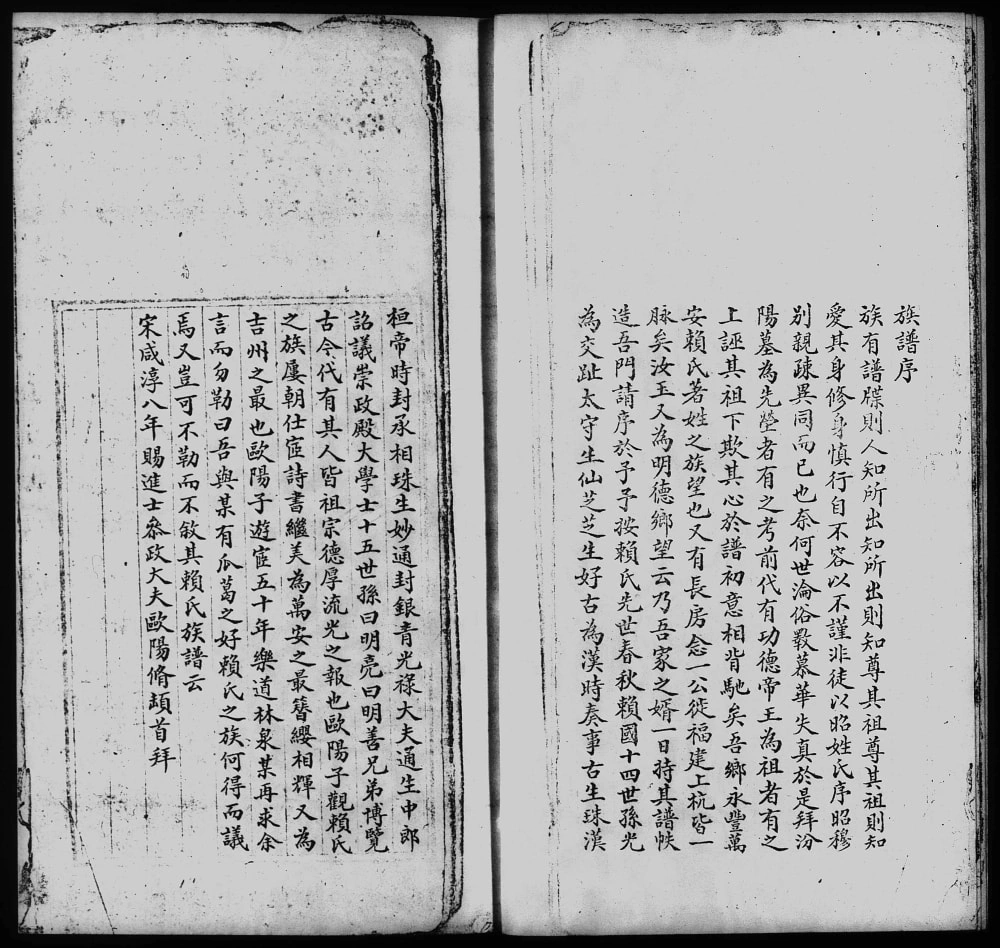 族譜序
族有譜牒則人知所出知所出則知尊其祖尊其祖則知
愛其身修身慎行自不容以不謹非徒以昭姓氏序昭穆
別親疎異同而已也奈何世淪俗斁慕華失真於是拜汾
陽墓為先塋者有之考前代有功德帝王為祖者有之
上誣其祖下欺其心於譜初意相背馳矣吾鄉永豐萬
安賴氏著姓之族望也又有長房念一公徙福建上杭皆一
脉矣汝玉又為明德鄉望云乃吾家之婿一日持其譜帙
造吾門請序於予予按賴氏先世春秋賴國十四世孫光
為交趾太守生仙芝芝生好古為漢時奏事古生珠漢
桓帝時封承相珠生妙通封銀青光祿大夫通生中郎
詔議崇政殿大學士十五世孫曰明亮曰明善兄弟博覽
古今代有其人皆祖宗德厚流光之報也歐陽子觀賴氏
之族屢朝仕宦詩書繼美為萬安之最簪纓相輝又為
吉州之最也歐陽子遊宦五十年樂道林泉某再求余
言而勿勒曰吾與某有瓜葛之好賴氏之族何得而議
焉又豈可不勒而不敘其賴氏族譜云
宋咸淳八年賜進士叅政大夫歐陽脩頓首拜